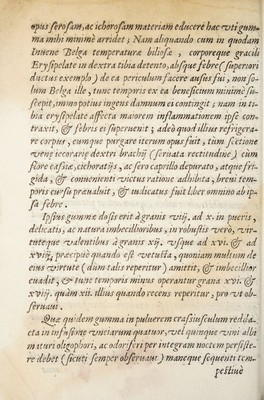 opus serosam, ac ichorosam materiam educere hac vti gumma mihi minimè arridet; Nam aliquando cum in quodam
Iuuene Belga temperaturæ biliosæ, corporeque gracili
Erysipelate in dextra tibia detento, absque febre (superiori
ductus exemplo) de ea periculum facere ausus fui, non solum Belga ille, tunc temporis ex ea beneficium minimè suscepit, immo potius ingens damnum ei contingit; nam in tibia erysipelate affecta maiorem inflammationem ipse contraxit, & febris ei superuenit; adeò quod illius refrigerare corpus, eumque purgare iterum opus fuit, tùm sectione
venæ iecorariæ dextri brachij (seruata rectitudine) cum
flore cassiæ, cichoratijs, ac sero caprillo depurato, atque frigida, & conuenienti victus ratione adhibita, breui temporis cursu præualuit, & iudicatus fuit liber omnino ab ipsa febre.
Ipsius gummæ dosis erit à granis viij. ad x. in pueris,
delicatis, ac natura imbecillioribus, in robustis verò, virtuteque valentibus à granis xij. vsque ad xvi. & ad
xviij. præcipuè quando est vetusta, quoniam multum de
eius virtute (dum talis reperitur) amittit, & imbecillior
euadit, & tunc temporis minus operantur grana xvi. &
xviij. quàm xij. illius quando recens reperitur, pro vt obseruaui.
Quæ quidem gumma in puluerem crassiusculum reddacta in infusione vnciarum quatuor, vel quinque vini albi
maturi oligophori, ac odoriferi per integram noctem persistere debet (sicuti semper obseruaui) maneque sequenti tempestiuè